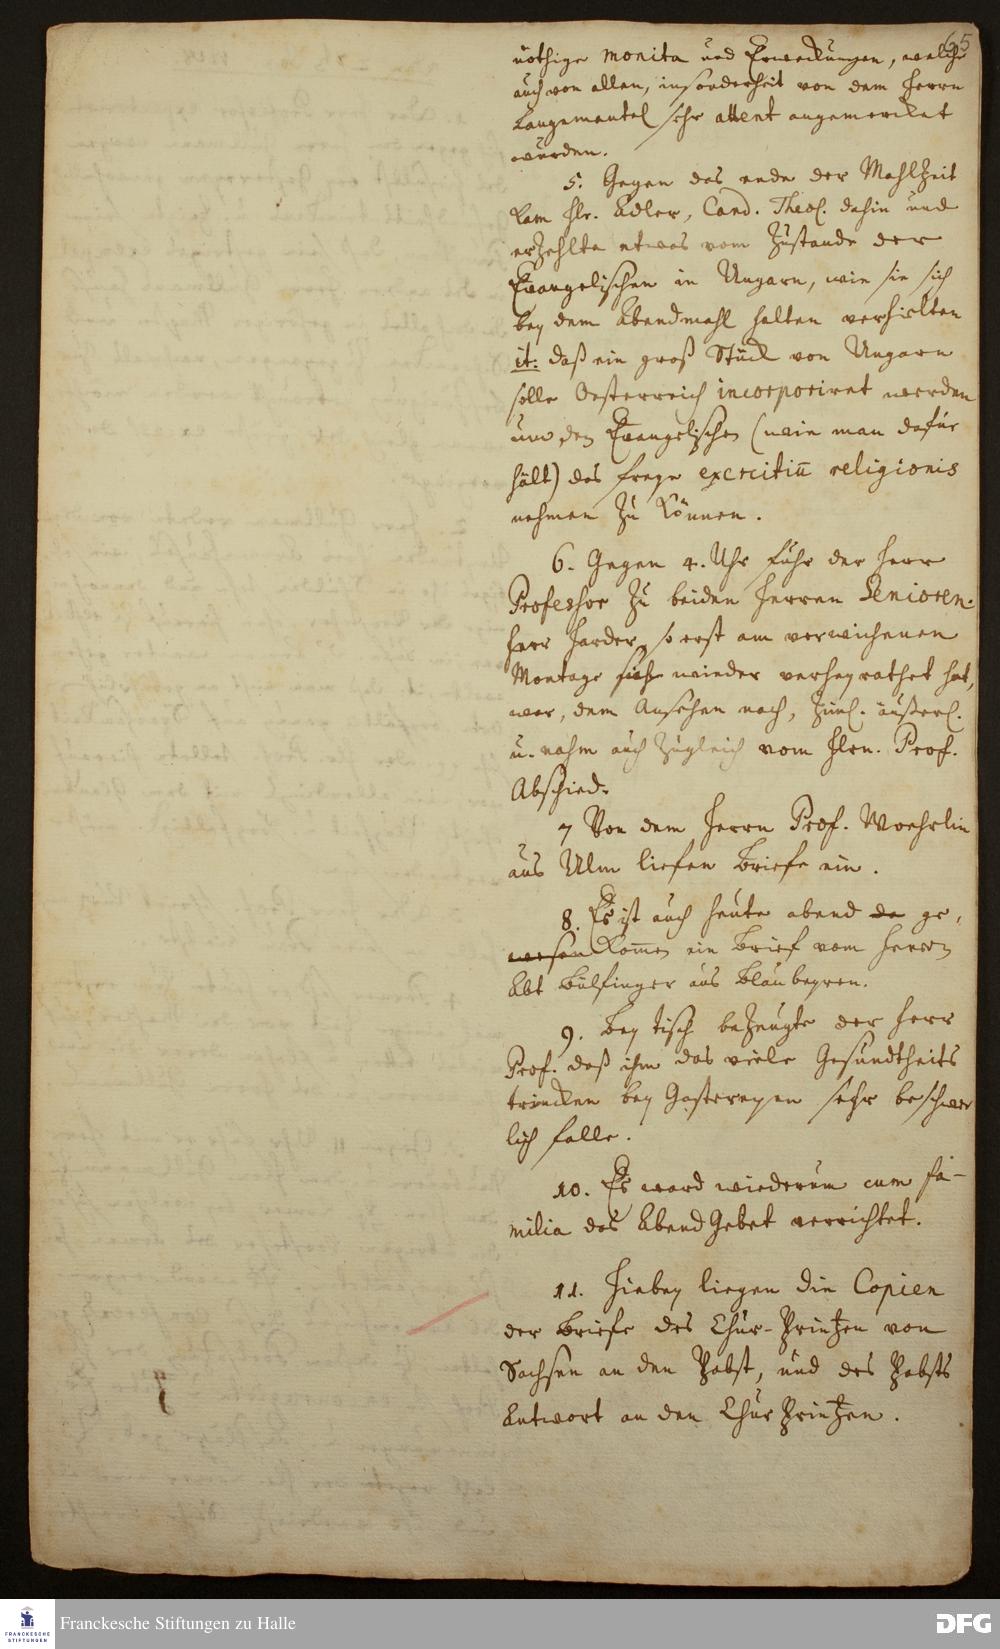 65
nöthige monita und Erweckungen, welche
auch von allen, insonderheit von dem Herrn
Langemantel sehr attent angemercket
wurden.
5. Gegen das ende der Mahlzeit
kam Hr. Adler, Cand. Theol. dahin und
erzehlte etwas vom Zustande der
Evangelischen in Ungarn, wie sie sich
bey dem Abendmahl halten verhielten
it: daß ein groß Stück von Ungarn
solle Oesterreich incorporiret werden
um den Evangelischen (wie man dafür
hält) das freye exercitiū religionis
nehmen zu können.
6. Gegen 4. Uhr fuhr der Herr
Professor zu beiden Herren Senioren.
Herr Harder, so erst am verwichenen
Montage sich wieder verheyrathet hat,
war, dem Ansehen nach, ziml. äußerl.
u. nahm auch zugleich vom Hrn. Prof.
Abschied.
7 Von dem Herrn Prof. Woehrlin
aus Ulm liefen Briefe ein.
8. Es ist auch heute abend da ge,
wesen kom̄en ein Brief vom Herrn
Abt Bülfinger aus Blaubeyren.
9. Bey tisch bezeugte der Herr
Prof. daß ihm das viele Gesundtheits
trincken bey Gastereyen sehr beschwer
lich falle.
10. Es ward wiederum cum fa-
milia das Abend Gebet verrichtet.
11. Hiebey liegen die Copien
der Briefe des Chur-Printzen von
Sachsen an den Pabst, und des Pabsts
Antwort an den Chur Printzen.
FRANCKESCHE
STIFTUNGEN
Franckesche Stiftungen zu Halle
DFG